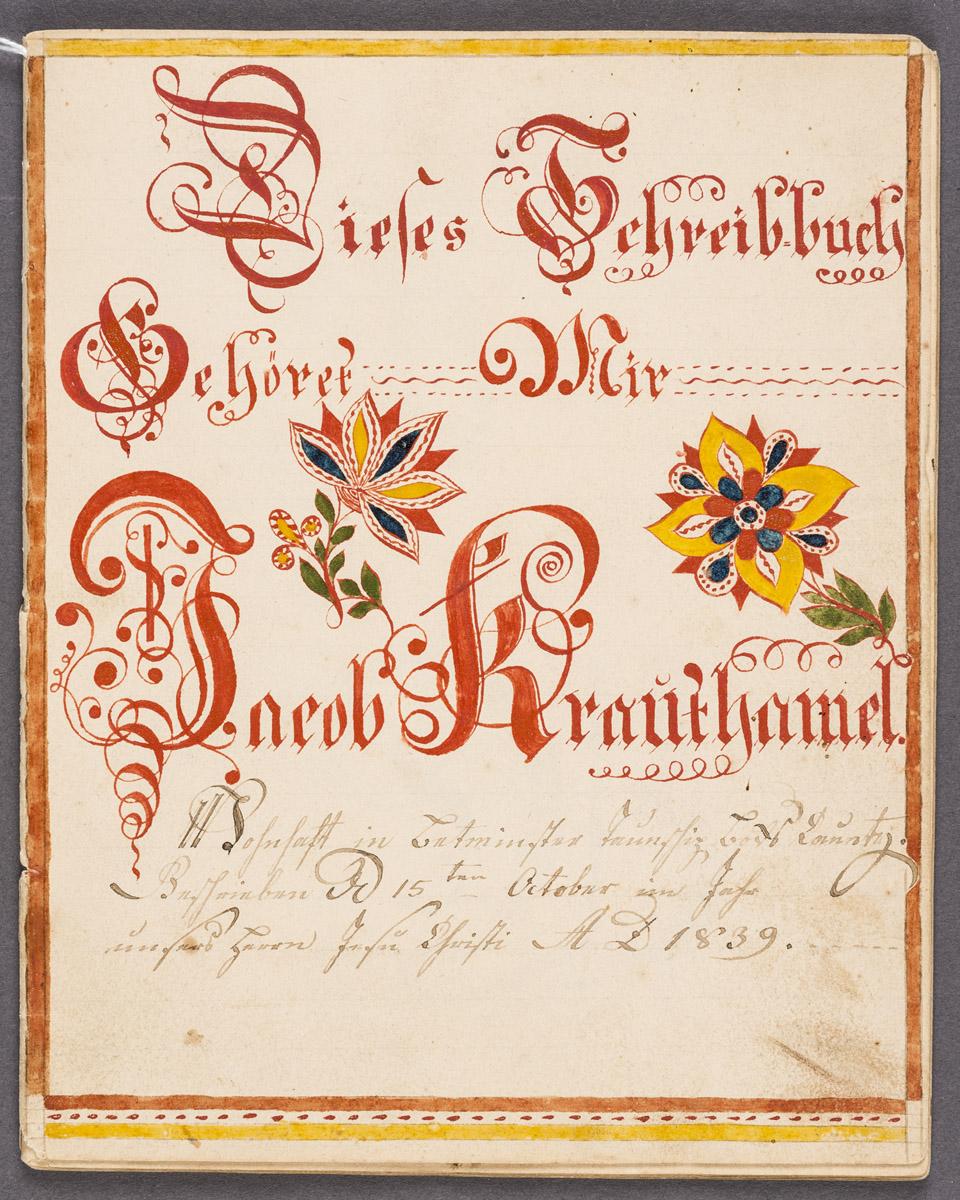 Dieses Schreib=buch
Gehöret Mir
Jacob Krauthamel.
Wohnhaft in Betminster Taunship Bocks Caunty.
Beschrieben D 15ten October im Jahr
unsers Herrn Jesu Christi A D 1839.